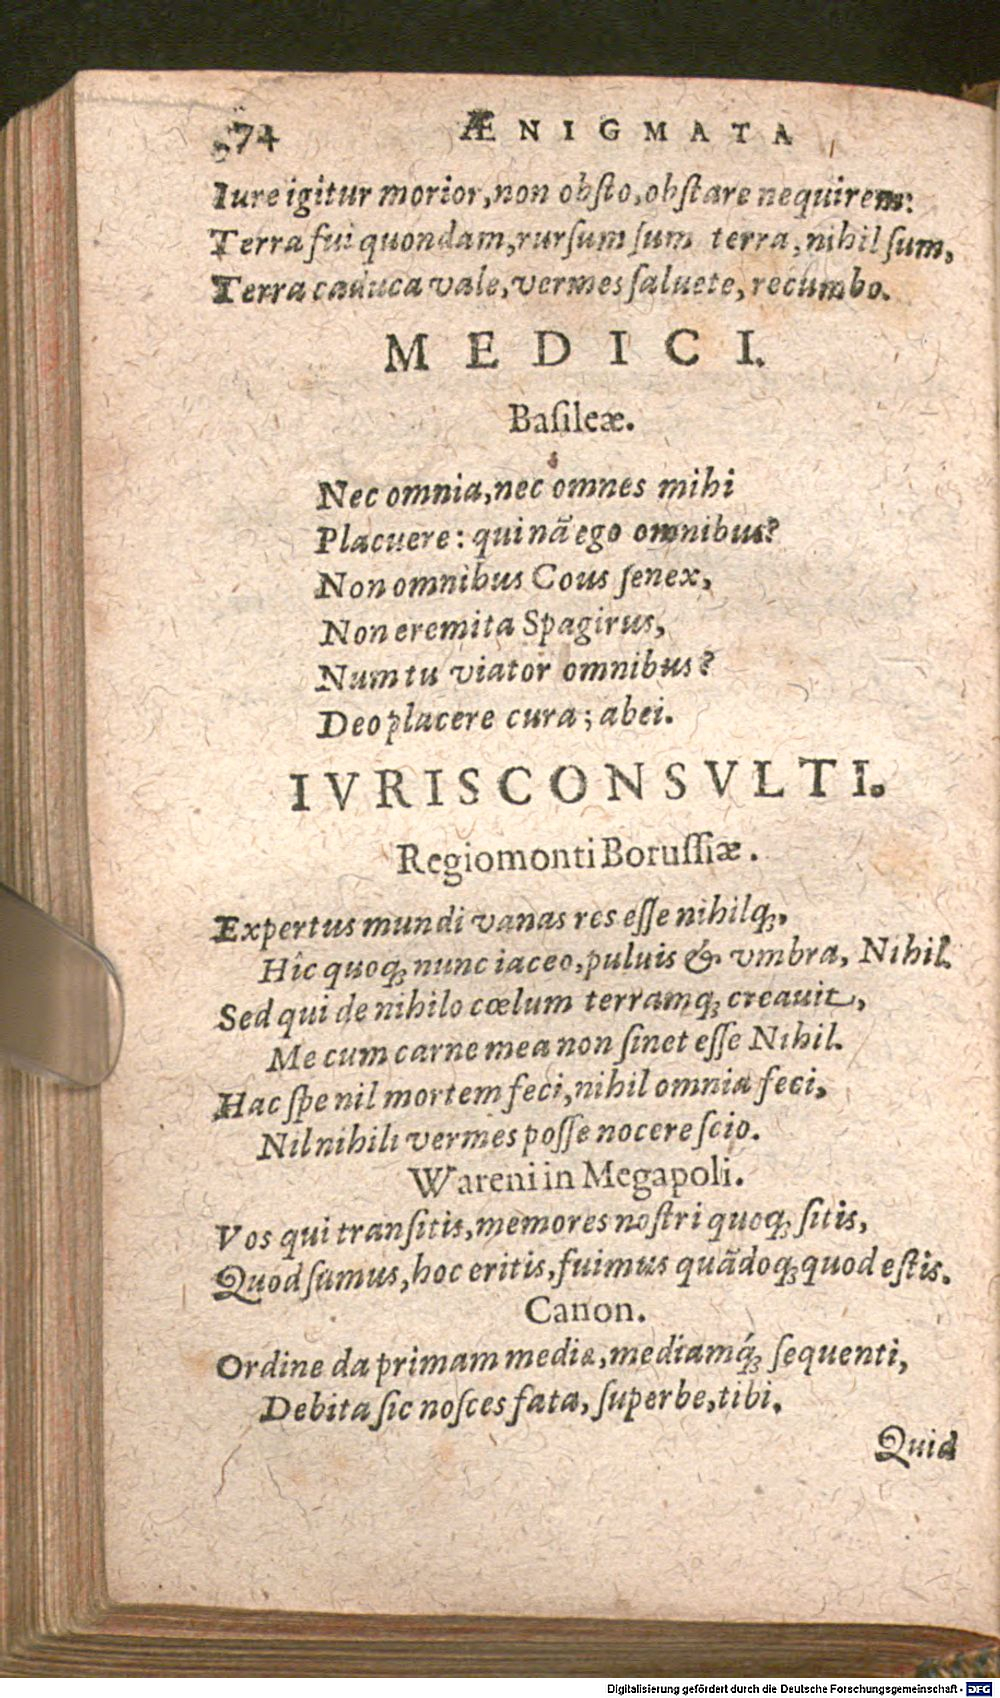 74 ÆNIGMATA
Iure igitur morior, non obſto, obſtare nequirem:
Terra fui quondam, rurſum ſum terra, nihil ſum,
Terra caduca vale, vermes ſaluete, recumbo.
MEDICI.
Baſileæ.
Nec omnia, nec omnes mihi
Placuere: quinã ego omnibus?
Non omnibus Cous ſenex,
Non eremita Spagirus,
Num tu viator omnibus?
Deo placere cura; abei.
IVRISCONSVLTI.
Regiomonti Boruſſiæ.
Expertus mundi vanas res eſſe nihilq́;,
Hîc quoq; nunc iaceo, puluis & vmbra, Nihil.
Sed qui de nihilo cœlum terramq; creauit,
Me cum carne mea non ſinet eſſe Nihil.
Hac ſpe nil mortem feci, nihil omnia feci,
Nil nihili vermes poſſe nocere ſcio.
Wareni in Megapoli.
Vos qui tranſitis, memores noſtri quoq; ſitis,
Quod ſumus, hoc eritis, fuimus quãdoq; quod eſtis.
Canon.
Ordine da primam mediæ, mediamq́; ſequenti,
Debita ſic noſces fata, ſuperbe, tibi.
Quid
Digitalisierung gefördert durch die Deutsche Forschungsgemeinschaft - DFG